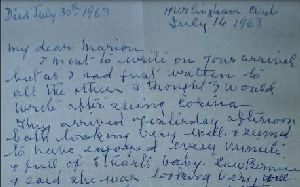 Died July 30th 1963
Hurlingham Club
July 16 1963
My dear Marion,
I meant to write on your arrival
but as I had just written to
all the others I thought I would
write after seeing
They arrived yesterday afternoon
both looking very well & seemed
to have enjoyed every minute
& full of baby.
& said she was looking very well